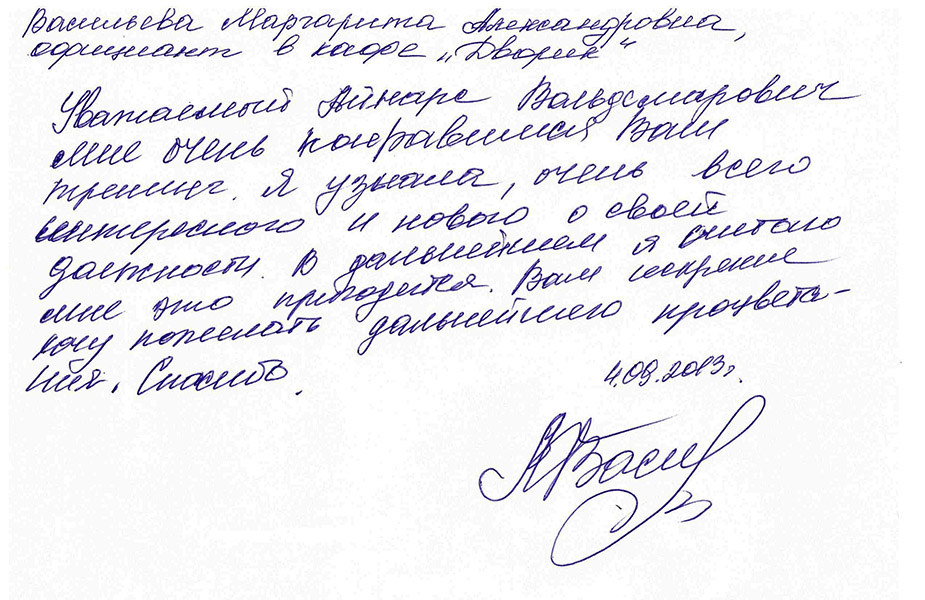 Васильева Маргарита Александровна,
официант в кафе „Дворик"
Уважаемый Айнарс Вольдемарович
мне очень понравился Ваш
тренинг. Я узнала, очень всего
интересного и нового о своей
должности. В дальнейшем я считаю
мне это пригодится. Вам искренне
хочу пожелать дальнейшего процвета-
ния. Спасибо.
4.09.2013г.